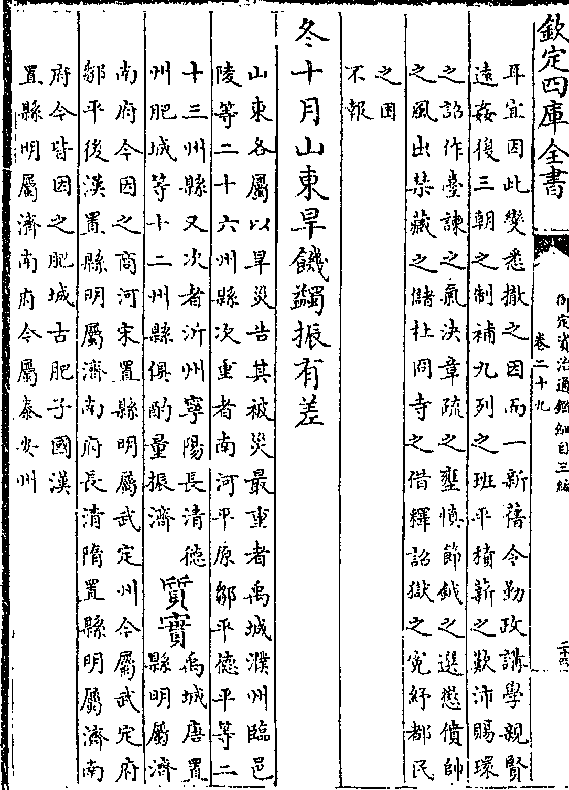 欽定四庫全書
御定資治通鑑綱目三編
卷二十九
二十四
耳宜因此變悉撤之因而一新舊令勤政講學親賢
遠姦復三朝之制補九列之班平積薪之歎沛賜環
之詔作臺諫之氣決章疏之壅慎節鉞之選懲債帥
之風出禁藏之儲杜冏寺之借釋詔獄之寃紓都民
之困
不報
冬十月山東旱饑蠲振有差
山東各屬以旱災告其被災最重者禹城濮州臨邑
陵等二十六州縣次重者南河平原鄒平德平等二
十三州縣又次者沂州寧陽長清德
州肥城等十二州縣俱酌量振濟
質實
禹城唐置
縣明屬濟
南府今因之商河宋置縣明屬武定州今屬武定府
鄒平後漢置縣明屬濟南府長清隋置縣明屬濟南
府今皆因之肥城古肥子國漢
置縣明屬濟南府今屬泰安州